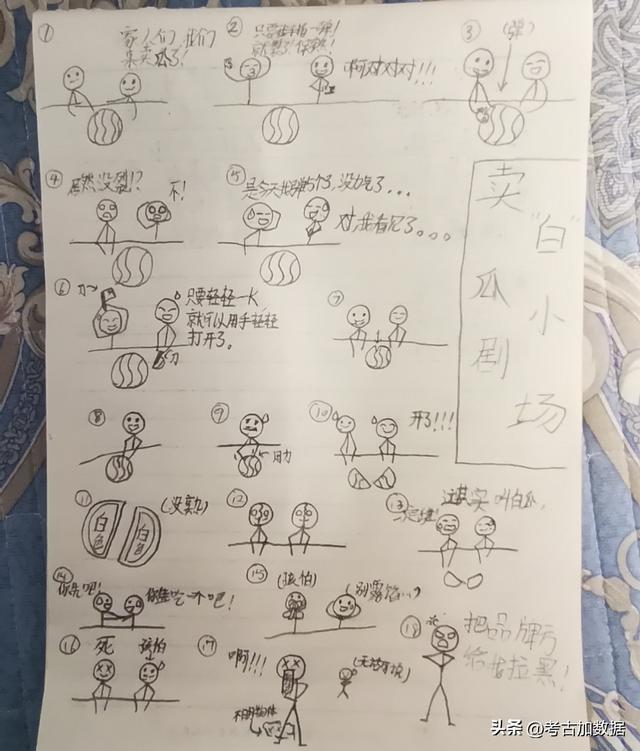 ①
家人们 我们
来卖瓜了!
②
只要在手指一弹!
就裂了!保熟!
啊对对对!!!
③
(弹)
④
居然没裂!?
不!
⑤
是今天我弹的了,没力气了...
对,我看见了。。。
卖瓜剧
"白"小场
⑥
刀~
只要轻轻一K
就可以用手轻轻
打开了。
刀
⑦
⑧
⑨
用力
⑩
开了!!!
⑪
白色
白色
(没熟)
⑫
⑬
这其实叫白瓜,
⑭
你先吧!
你先吃一个吧!
⑮
(害怕)
(别露馅,,,)
⑯
死
害怕
⑰
啊!!!
不明物体
⑱
把品牌方
给我拉黑!
头条 @考古加数据